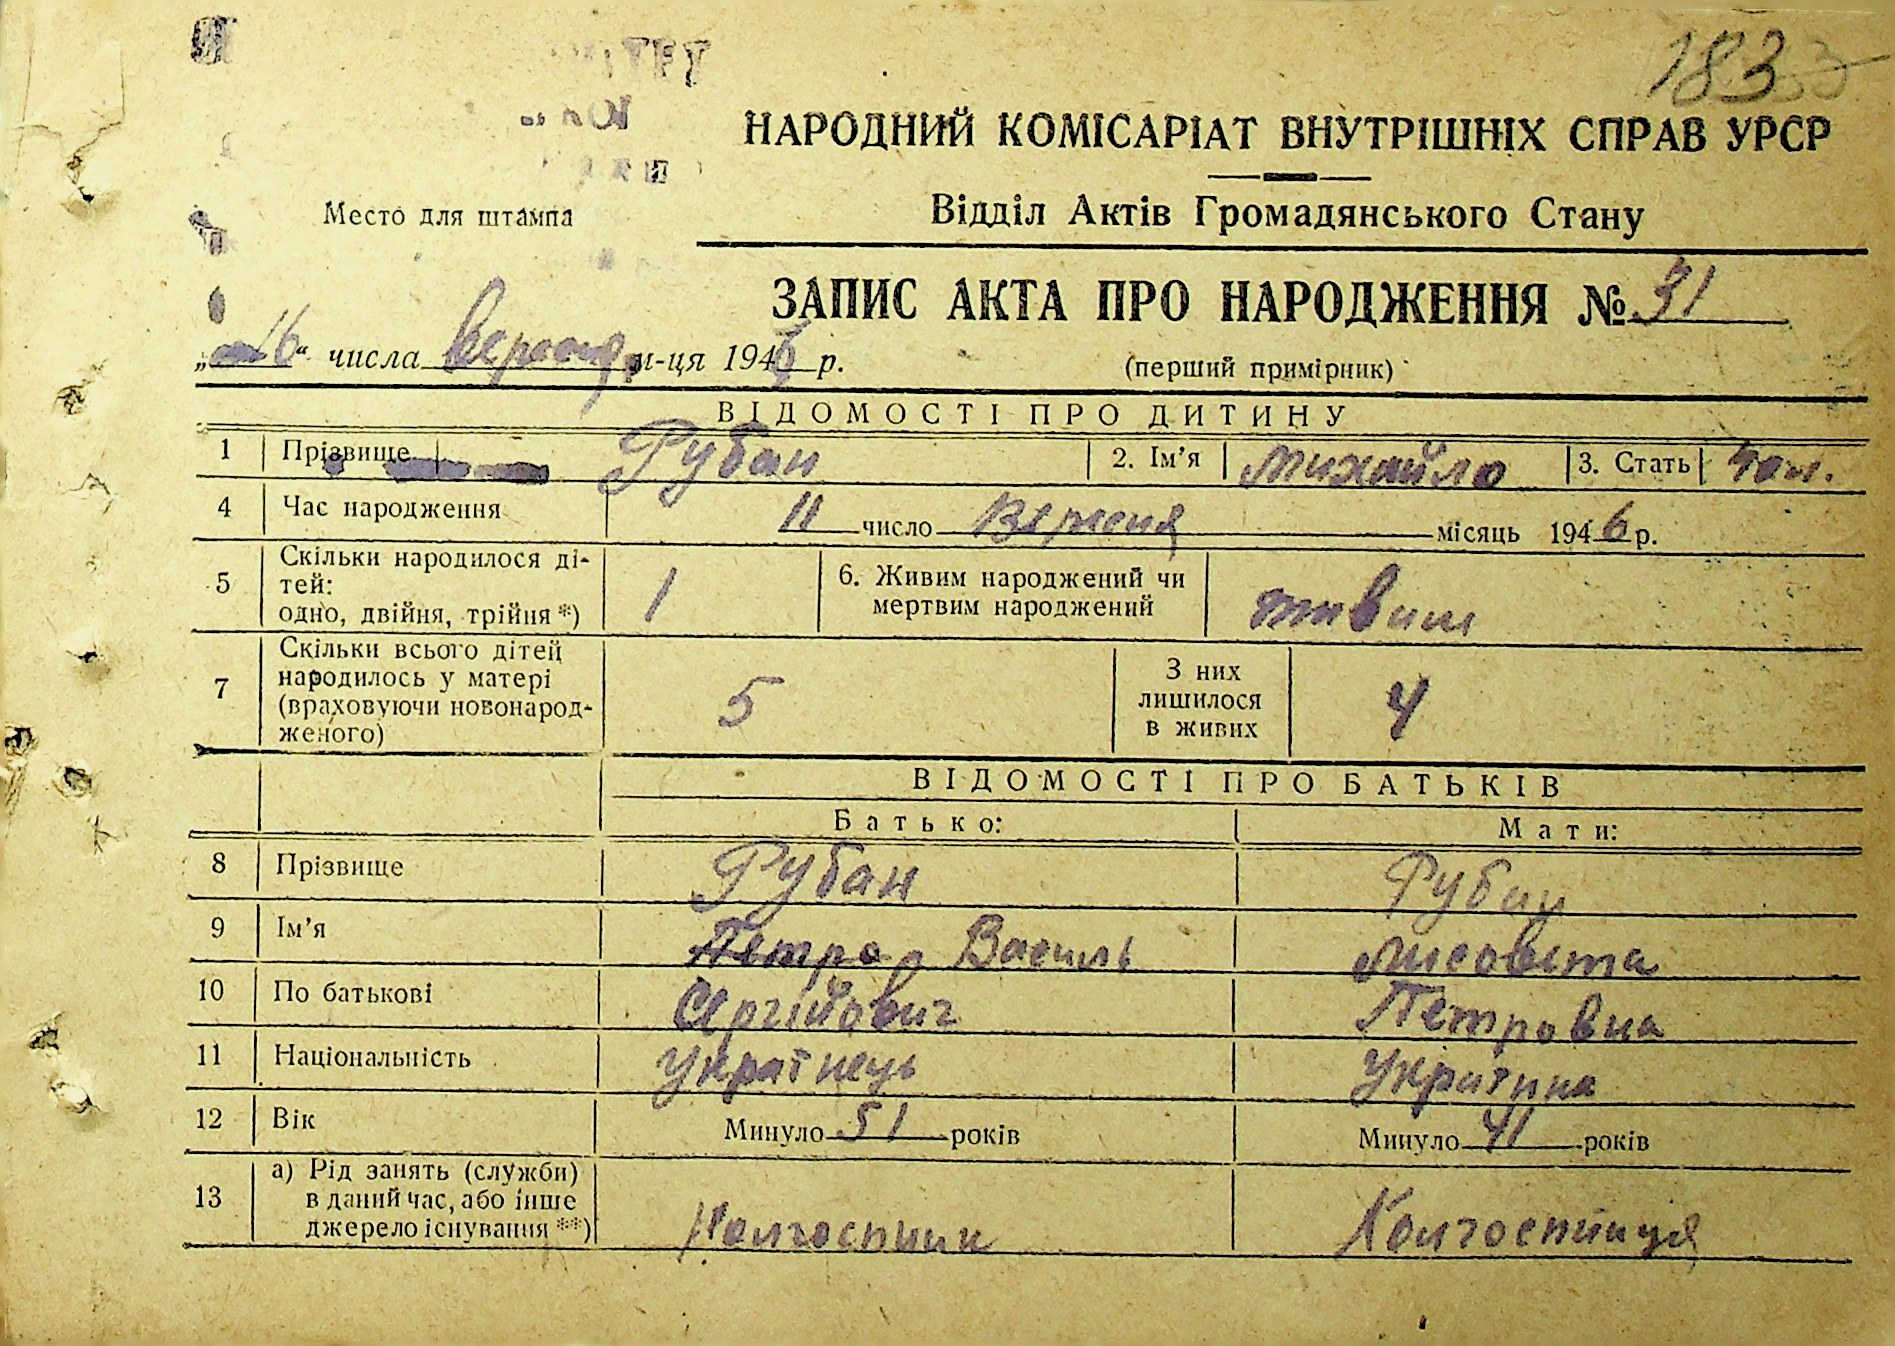 183
НАРОДНИЙ КОМІСАРІАТ ВНУТРІШНІХ СПРАВ УРСР
Место для штампа
Відділ Актів Громадянського Стану
ЗАПИС АКТА ПРО НАРОДЖЕННЯ № 31
„16“ числа вересня м-ця 1946 р.
(перший примірник)
ВІДОМОСТІ ПРО ДИТИНУ
1 Прізвище Рубан 2. Ім’я Михайло 3. Стать чол.
4 Час народження 11 число Вересня місяць 1946 р.
5 Скільки народилося ді-
тей:
одно, двійня, трійня *) 1 6. Живим народжений чи
мертвим народжений живим
7 Скільки всього дітей
народилось у матері
(враховуючи новонарод-
женого) 5 З них
лишилося
в живих 4
ВІДОМОСТІ ПРО БАТЬКІВ
Батько: Мати:
8 Прізвище Рубан Рубан
9 Ім’я Петро Василь Лисовета
10 По батькові Сергійович Петровна
11 Національність Українець Українка
12 Вік Минуло 51 років Минуло 41 років
13 а) Рід занять (служби)
в даний час, або інше
джерело існування **) Колгоспник Колгоспниця